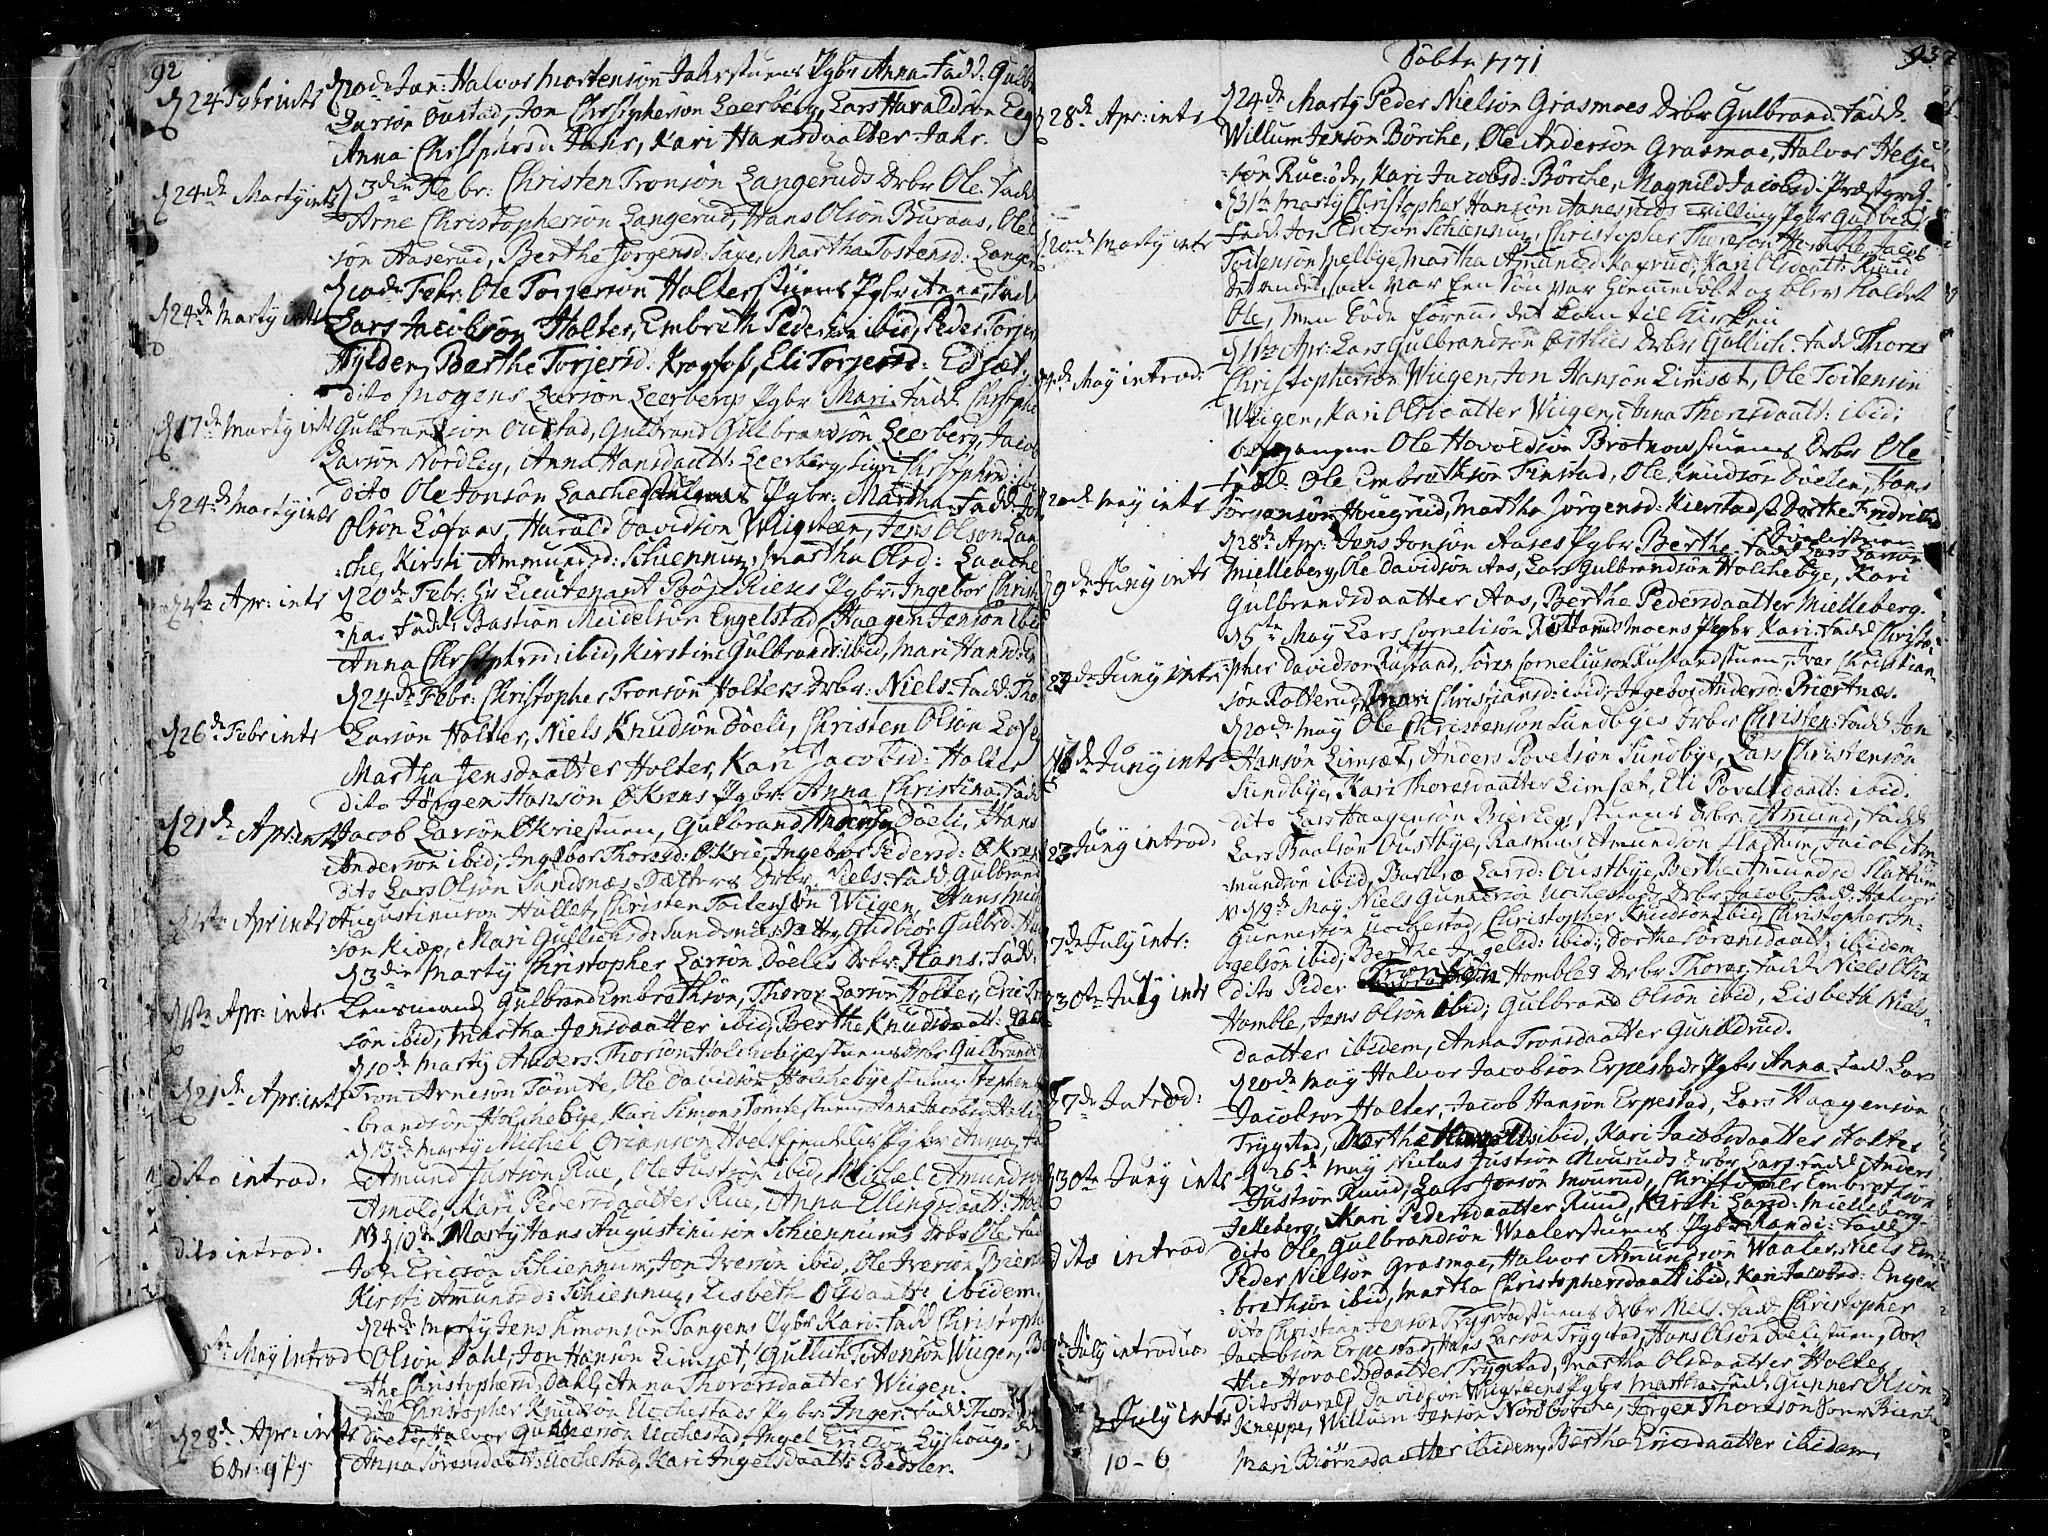 92
D 24 Febr ints
D 20de Jan: Halvor Mortensøn Jahrstuens Pgbr Anna. Fadd: Gulbr
Larsøn Oustad, Jon Christophersøn Leerberg, Lars Haraldsøn Eeg
Anna Christophersd: Jahr, Kari Hansdaatter Jahr.
D 24de Marty ints
D 3die Febr: Christen Tronsøn Langeruds Drbr Ole. Fadd:
Arne Christophersøn Langerud, Hans Olsøn Buraas, Ole
søn Aaserud, Berthe Jørgensd: Saxe, Martha Tostensd: Langer
D 24de Marty ints
D 10de Febr: Ole Torjersøn Holterstuens Pgbr Anna, Fadd
Lars Jacobsøn Holter, Embreth Pedersøn ibid, Peder Torjer
Hylden, Berthe Torjersd: Kragfos, Eli Torjersd: Edsæt.
D 17de Marty ints
dito Mogens Larsøn Leerbergs Pgbr Mari. Fadd: Christophe
Gulbrandsøn Oustad, Gulbrand Gulbrandsøn Leerberg, Jacob
Larsøn Nordeeg, Anna Hansdaatt: Leerberg, Siri Christophersd: ibid
D 24de Marty ints
dito Ole Jonsøn Laachestuens Pgbr: Martha. Fadd: Jo
Olsøn Løfaas, Harald Davidsøn Wligsteen, Jens Olsøn Laa
che, Kirsti Ammundsd: Schiennum, Martha Olsd: Laache
D 1ste Apr: ints
D 20de Febr: Hr Lieutenant Bøye Rieses Pgbr: Ingebor Christ
Fadd: Bastian Meidelsøn Engelstad, Haagen Jensøn ibid
Anna Christophersd: ibid, Kirstine Gulbrandsd: ibid, Mari Hansd:
D 26de Febr ints
D 24de Febr: Christopher Tronsøn Holters Drbr: Niels. Fadd: Tho
Larsøn Holter, Niels Knudsøn Døeli, Christen Olsøn
Martha Jensdaatter Holter, Kari Jacobsd: Holter
D 21de Apr: ints
dito Jørgen Hansøn Økrens Pgbr: Anna Christina. Fadd
Jacob Larsøn Økriestuen, Gulbrand Andersøn Døeli, Hans
Andersøn ibid; Ingebor Thoresd: Økrie, Ingebor Pedersd: Økren
D 1ste Apr ints
dito Lars Olsøn Sandsnæs Dætters Drbr: Niels. Fadd: Gulbrand
Augustinusøn Hullet, Christen Tostensøn Wiigen, Hans
søn Kiøp, Mari Gullichsd: Sandsnæs, Gudbior Gulbrd:
D 1ste Apr: ints:
D 3die Marty Christopher Larsøn Døelis Drbr: Hans. Fadd:
Lensmand Gulbrand Embrethsøn, Thorer Larsøn Holter, Eric
søn ibid; Martha Jensdaatter ibid, Berthe Knudsdaatt:
D 21de Apr: ints
D 10de Marty Anders Thorsøn Holchebyestuens Drbr Gulbrand
Tron Arnesøn Tomte, Ole Davidsøn Holchebyestuen, Stephen
brandsøn Holchebye, Kari Simons Tomtestuen, Anna Jacobsd: Holch
dito introd.
D 13de Marty Michel Pgbr Anna, Fa
Amund Justsøn Rue, Ole Justsøn ibid, Michel Amundsøn
Amold, Kari Pedersdaatter Rue, Anna Ellingsdaatt:
dito introd.
NB D 10de Marty Hans Augustinusøn Schiennums Drbr Ole. Fad
Jon Ericsøn Schiennum, Jon Iversøn ibid, Ole Iversøn Bier
Kirsti Amundsd: Schiennug, Lisbeth Olsdaatt: ibidem.
May introd
D 24de Marty Jens Simonsøn Tangens Pgbr Kari. Fadd Christoph
Olsøn Dahl, Jon Hansøn Limsæt, Gullich Tostensøn Wiigen, Be
the Christophersd: Dahl, Anna Thoresdaatter Wiigen.
D 28de Apr: ints
dito Christopher Knudsøn Uochestads Pgbr: Inger. Fadd:
Halvor Gunnersøn Uochestad, Ingel Ericsøn
Anna Sørensdaatt: Uochestad, Kari Ingelsdaatt: Bedsler.
Døbte 1771
93
D 28de Apr: ints
D 24de Marty Peder Nielsøn Grasmoes Drbr Gulbrand. Fadd.
Willum Jensøn Børche, Ole Andersøn Grasmoe, Halvor Helje
søn Rueøde, Kari Jacobsd: Børche, Magnild Jacobsd: Præstgrd:
D 20de Marty ints
D 31te Marty Christopher Hansøn Aaneruds Tvilling Pgbr Gudbior,
Fadd. Jon Ericsøn Schiennug, Christopher Thoresøn Homble, Jacob
Tostensøn Melbye, Martha Amundsd: Kaxrud, Kari Olsdaatt: Ruud
Det andet, som var Een Søn var Hiemmedøbt og blev kaldet
Ole, Men døde førend det kom til Kirken
D 4de May introd:
D 1ste Apr: Lars Gulbrandsøn Østlies Drbr Gullich. Fadd Thores
Christophersøn Wiigen, Jon Hansøn Limsæt, Ole Tostensøn
Wiigen, Kari Olsdaatter Wiigen, Anna Thoresdaatt: ibid:
D 20de May ints
Ole Hovoldsøn Brotnowstuens Drbr Ole
Fadd: Ole Embrethsøn Finstad, Ole Knudsøn Døelen, Hans
Jørgensøn Hougrud, Martha Jørgensd: Kierstad, Dorthe Fredrichs
Døelistuen
D 9de Juny ints
D 28de Apr: Jens Jonsøn Aases Pgbr Berthe. Fadd Lars Larsøn
Mielleberg, Ole Davidsøn Aas, Lars Gulbrandsøn Holchebye, Kari
Gulbrandsdaatter Aas, Berthe Pedersdaatter Mielleberg.
23de Juny intr:
D 5te May Lars Cornelisøn Rustands Moens Pgbr Kari. Fadd Christo=
pher Davidsøn Rustand, Søren Corneliusøn Rustandstuen, Iver Christian
søn Kolterud, Mari Christiansd: ibid, Ingebor Andersd: Biertnæs.
D 16de Juny ints
D 20de May Ole Christensøn Sundbyes Drbr Christen. Fadd Jon
Hansøn Limsæt, Anders Povelsøn Sundbye, Lars Christensøn
Sundbye, Kari Thoresdaatter Limsæt, Eli Povelsdaatt: ibid.
23 Juny introd.
dito Lars Haagensøn Drbr Amund. Fadd
Lars Paalsøn Oustbye, Rasmus Amundsøn Slattum, Jacob Am=
mundsøn ibid, Barbro Larsd: Oustbye, Berthe Amundsd Slattum
7de July intr:
NB D 19de May Niels Gunnersøn Uochestads Drbr Jacob. Fadd. Halvor
Gunnersøn Uochestad, Christopher Knudsøn ibid, Christopher In=
gelsøn ibid, Berthe Ingelsd: ibid; Dorthe Sørensdaatt: ibidem
30te July ints
dito Peder Tronsøn Hombles Drbr Thorer. Fadd Niels Olsøn
Homble, Jens Olsøn ibid; Gulbrand Olsøn ibid, Lisbeth Niels=
daatter ibidem, Anna Tronsdaatter Gunildrud.
7de Introd:
D 20de May Halvor Jacobsøn Erpestads Pgbr Anna. Fadd Lars
Jacobsøn Holter, Jacob Hansøn Erpestad, Lars Haagensøn
Trygstad, Marthe ibid, Kari Jacobsdaatter Holter
30te Juny ints
D 26de May Niclas Justsøn Mouruds Drbr Lars. Fadd Anders
Justsøn Ruud, Lars Jonsøn Mourud, Christopher Embrethsøn
Jelleberg, Kari Pedersdaatter Ruud, Kirsti Larsd: Mielleberg.
dito introd
dito Ole Gulbrandsøn Waalerstuens Pgbr Randi: Fadd
Peder Nielsøn Grasmoe, Halvor Amundsøn Waaler, Niels Em=
brethsøn ibid, Martha Christophersdaatt ibid, Kari Jacobsd: Engen
July introduc.
dito Christen Jensøn Trygstadstuens Drbr Niels. Fadd. Christopher
Jacobsøn Erpestad, Hans Larsøn Trygstad, Hans Olsøn Døelistuen, Dor
the Hovoldsdaatter Trygstad, Martha Olsdaatter Holter
July ints:
dito Harald Davidsøn Wligsteens Pgbr Martha. Fadd: Gunner Olsøn
Kneppe, Willum Jensøn Nordbørche, Jørgen Thoresøn
Mari Biørnsdaatter ibidem, Berthe Ericsdaatter ibidem.
10 - 6